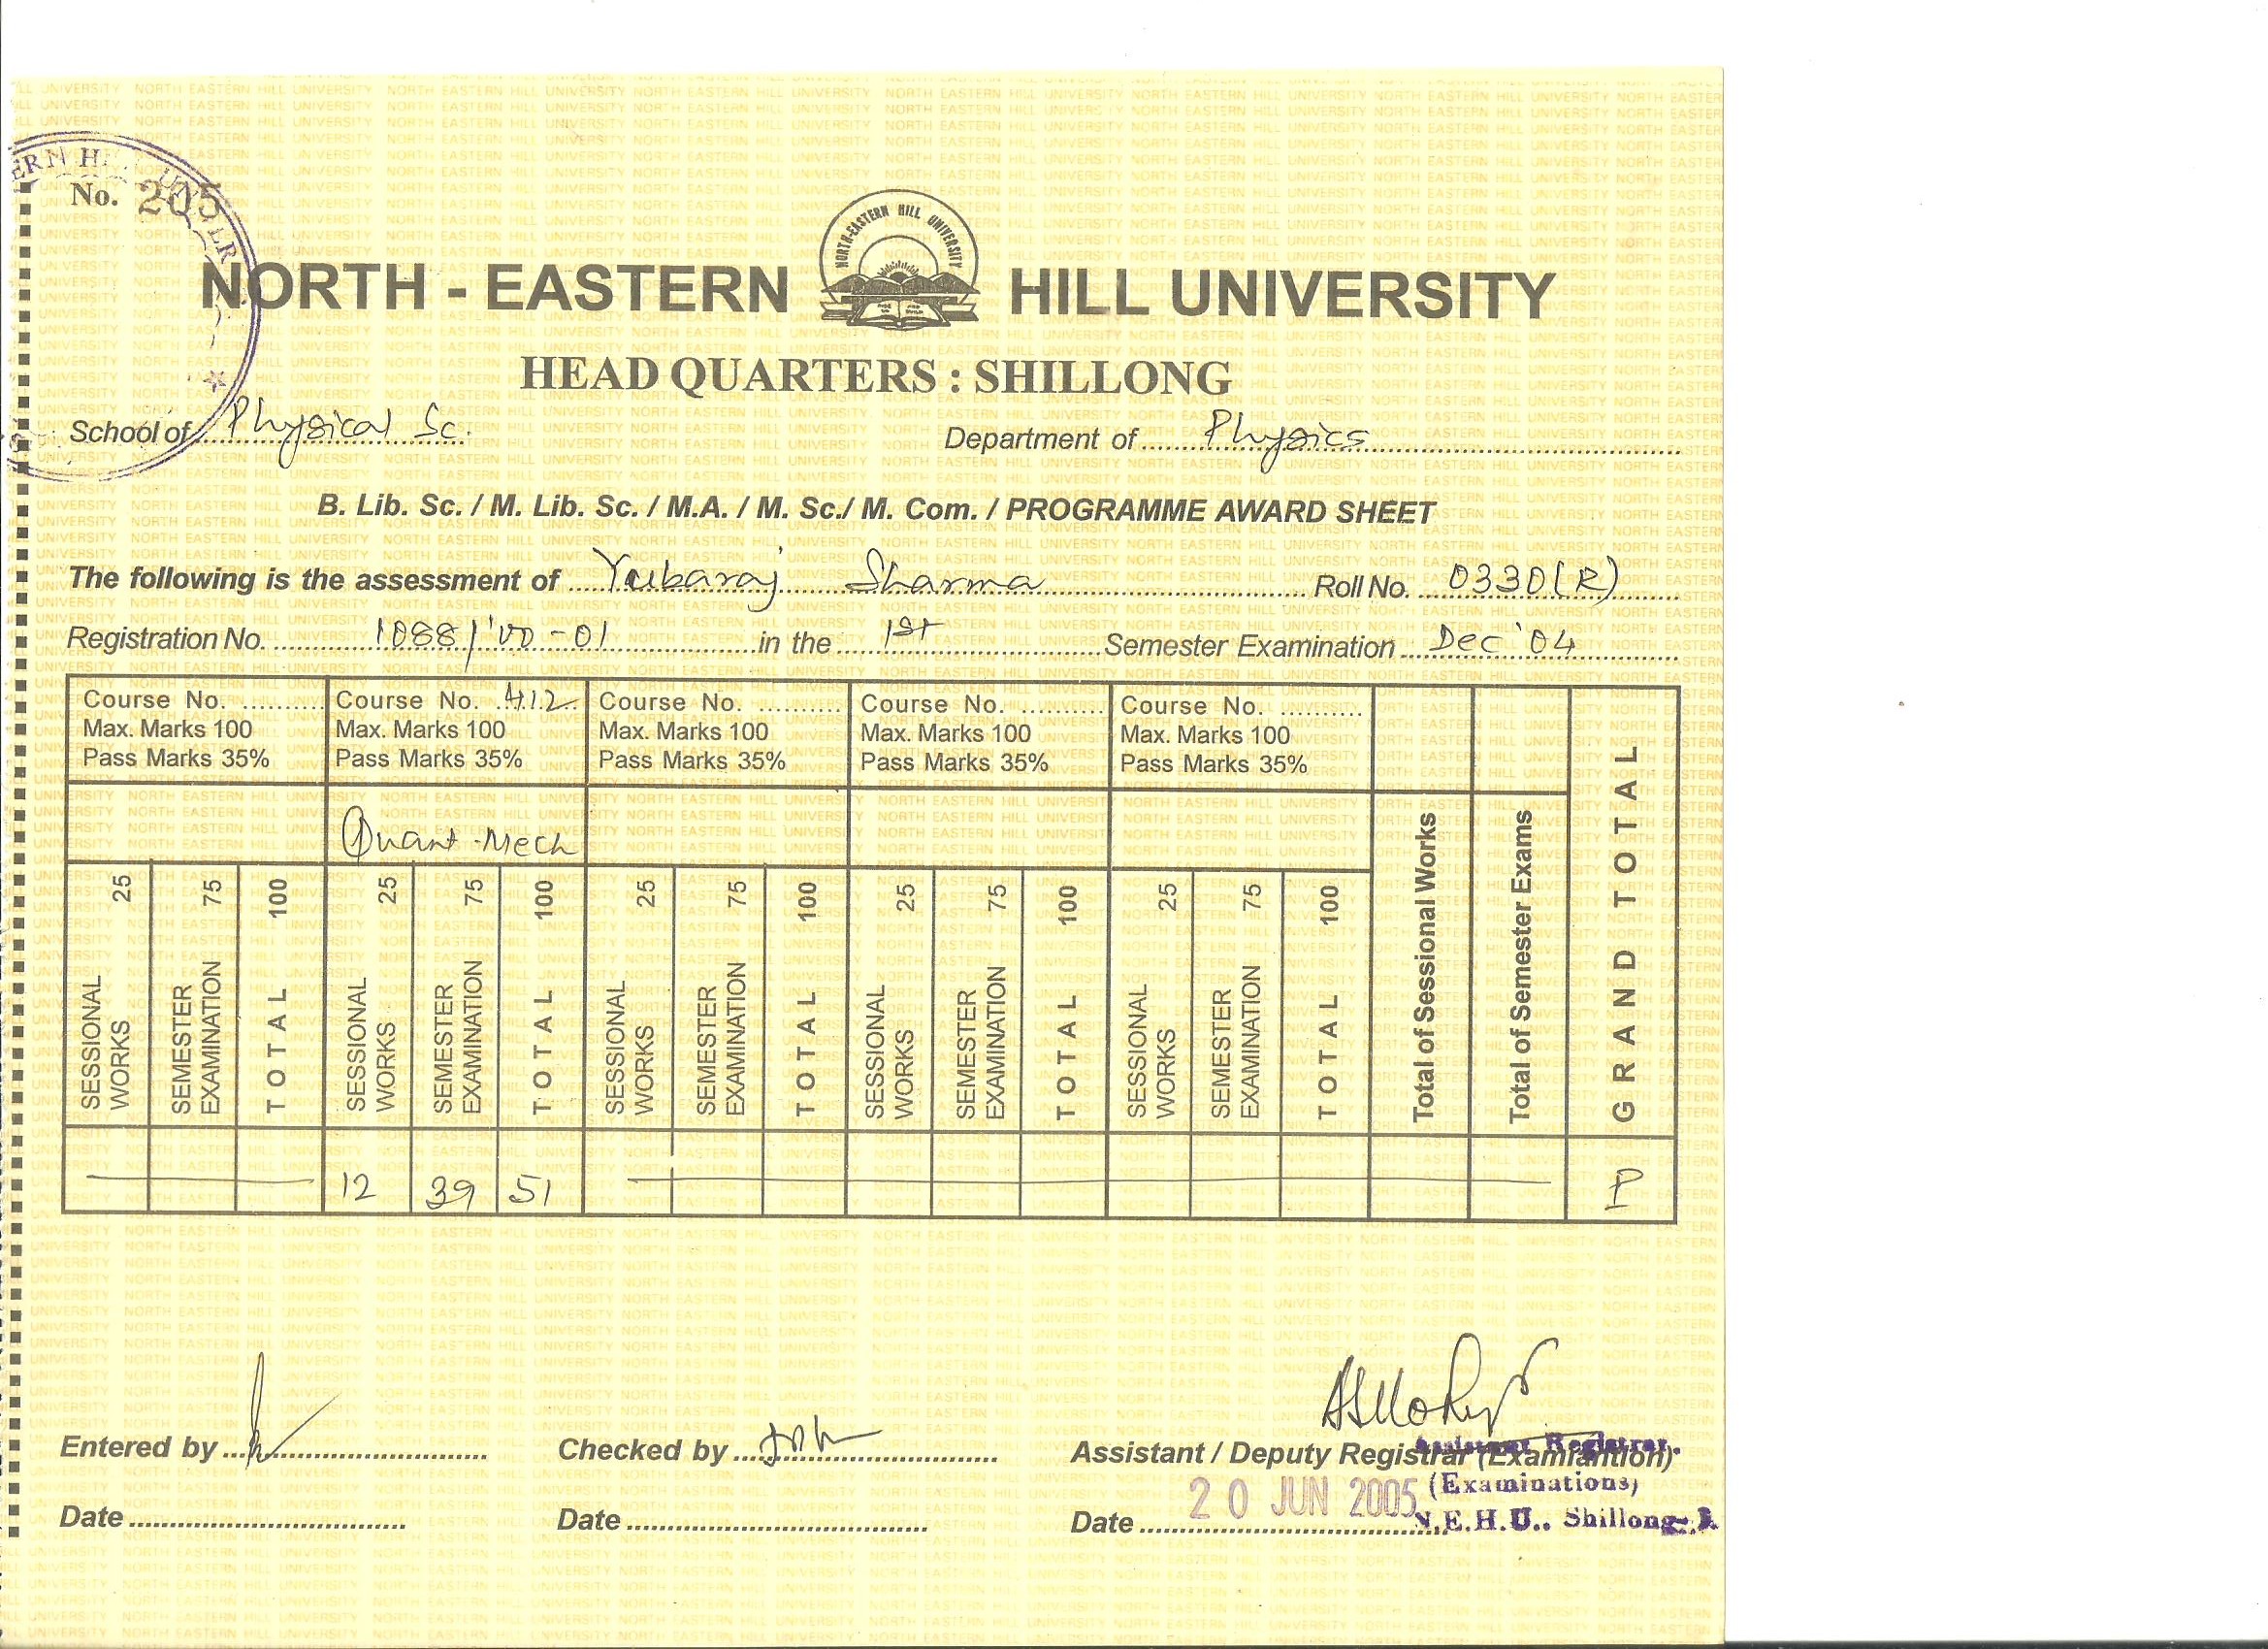 No. 205
NORTH - EASTERN HILL UNIVERSITY
NORTH-EASTERN HILL UNIVERSITY
HEAD QUARTERS : SHILLONG
School of Physical Sc. Department of Physics
B. Lib. Sc. / M. Lib. Sc. / M.A. / M. Sc./ M. Com. / PROGRAMME AWARD SHEET
The following is the assessment of Yubaraj Sharma Roll No. 0330(R)
Registration No. 1088/'00-01 in the 1st Semester Examination Dec '04
Course No. .......... Course No. 412 Course No. .......... Course No. .......... Course No. ..........
Max. Marks 100 Max. Marks 100 Max. Marks 100 Max. Marks 100 Max. Marks 100
Pass Marks 35% Pass Marks 35% Pass Marks 35% Pass Marks 35% Pass Marks 35%
Quant-Mech
SESSIONAL WORKS 25 SEMESTER EXAMINATION 75 TOTAL 100 SESSIONAL WORKS 25 SEMESTER EXAMINATION 75 TOTAL 100 SESSIONAL WORKS 25 SEMESTER EXAMINATION 75 TOTAL 100 SESSIONAL WORKS 25 SEMESTER EXAMINATION 75 TOTAL 100 SESSIONAL WORKS 25 SEMESTER EXAMINATION 75 TOTAL 100 Total of Sessional Works Total of Semester Exams GRAND TOTAL
12 39 51 P
Entered by Checked by Assistant / Deputy Registrar (Examiantion)
Assistant Registrar.
(Examinations)
N.E.H.U., Shillong
Date Date Date 20 JUN 2005